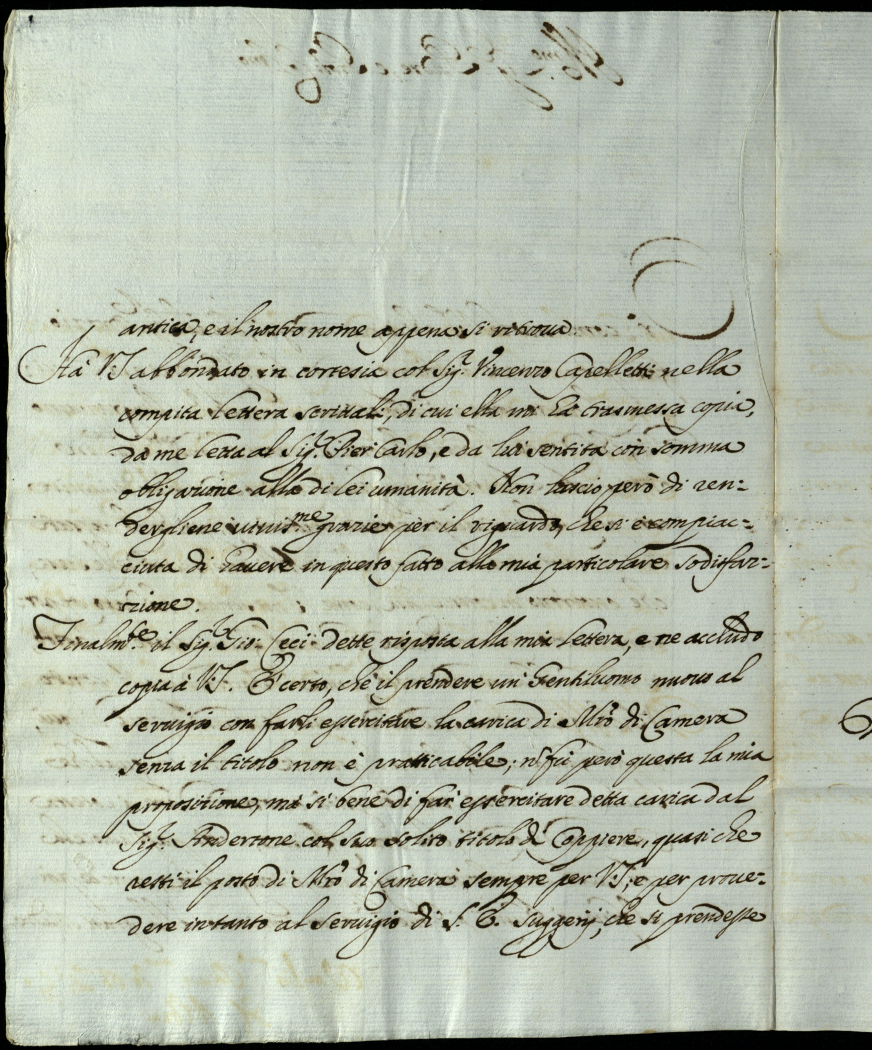 antica, e il nostro nome appena si ritroua
Hà V.S. abbondato in cortesia col Sig.r Vincenzo Capelletti nella
compita lettera scrittali, di cui ella mi hà trasmessa copia,
da me letta al Sig.r Pier Carlo, e da lui sentita con somma
obligazione alla di lei umanità. Non lascio però di ren=
dergliene viuiss.me grazie per il riguardo, che si è compiac=
ciuta di hauere in questo fatto alla mia particolare sodisfaz=
zione.
Finalm.te il Sig.r Gio: Ceci dette risposta alla mia lettera, e ne accludo
copia à V.S. È certo, che il prendere un Gentiluomo nuouo al
seruigio con farli essercitare la carica di Mro di Camera
senza il titolo non è pratticabile; nò fù però questa la mia
proposizione, mà si bene di far essercitare detta carica dal
Sig.r Andertone col suo solito titolo di Coppiere, quasi che
resti il posto di Mro di Camera sempre per VS, e per proue=
dere intanto al seruigio di S. E. suggerij, che si prendesse